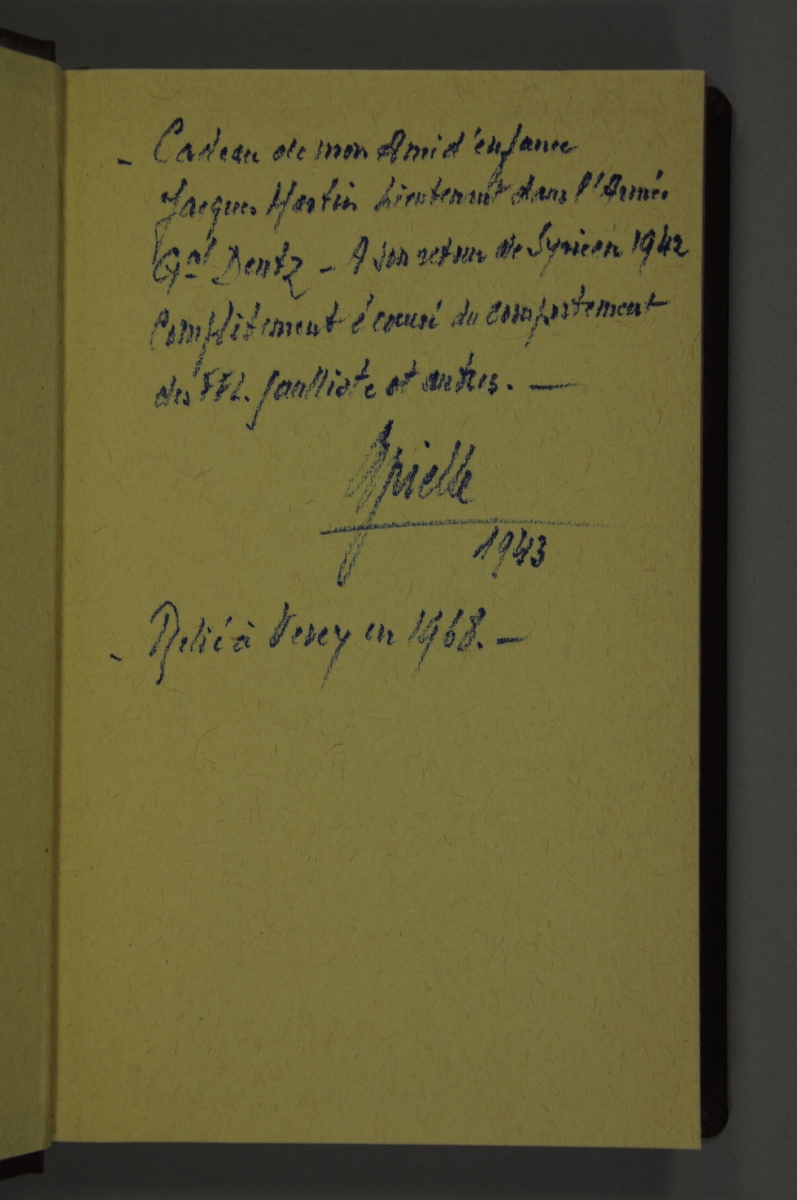 - Cadeau de mon Ami d'enfance
Jacques Martin Lieutenant dans l'Armée
Gal Dentz - A son retour de Syrie en 1942
Complètement écœuré du comportement
des FFL. gaulliste et autres. —
1943
- Relié à Vevey en 1968. -